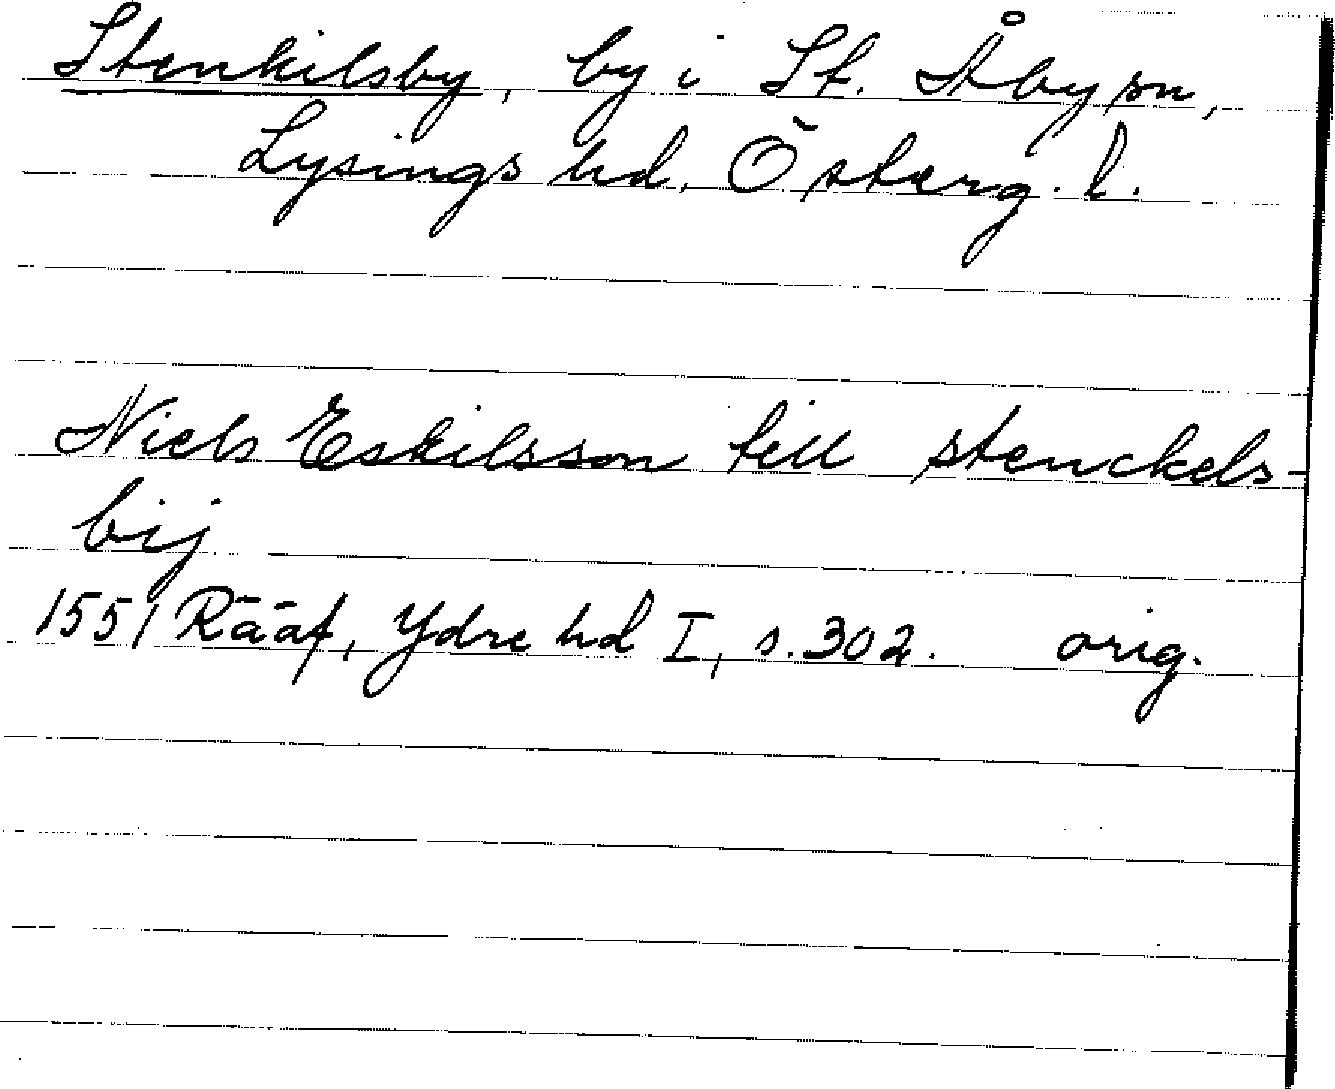 Stenkilsby, by i St. Åby sn,
Lysings hd, Österg. l.
Niels Eskilsson till stenckels-
bij
1551 Rääf, Ydre hd I, s. 302. orig.